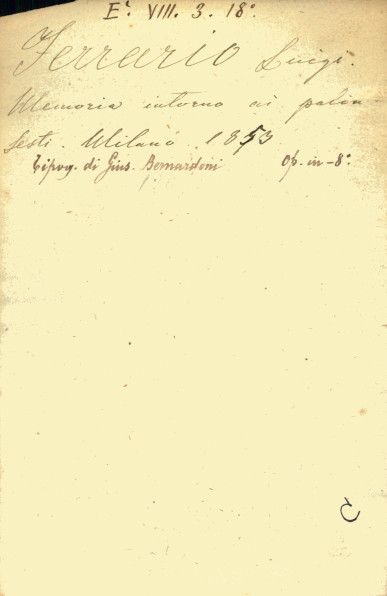 E². VIII. 3. 18°
Ferrario Luigi.
Memoria intorno ai palin-
sesti. Milano 1853
Tipog. di Gius. Bernardoni Op. in-8°